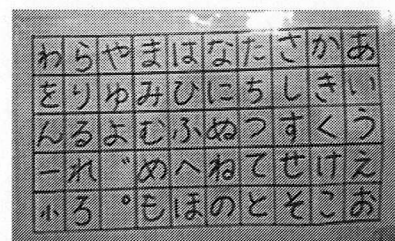 わらやまはなたさかあ
をりゆみひにちしきい
んるよむふぬつすくう
ーれ゛めへねてせけえ
小ろ゜もほのとそこお